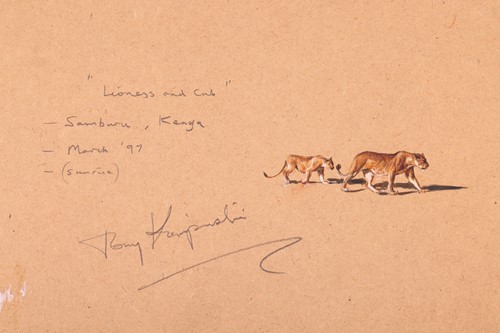 "Lioness and Cub"
- Samburu, Kenya
- March '97
- (sunrise)
Tony Karpinski